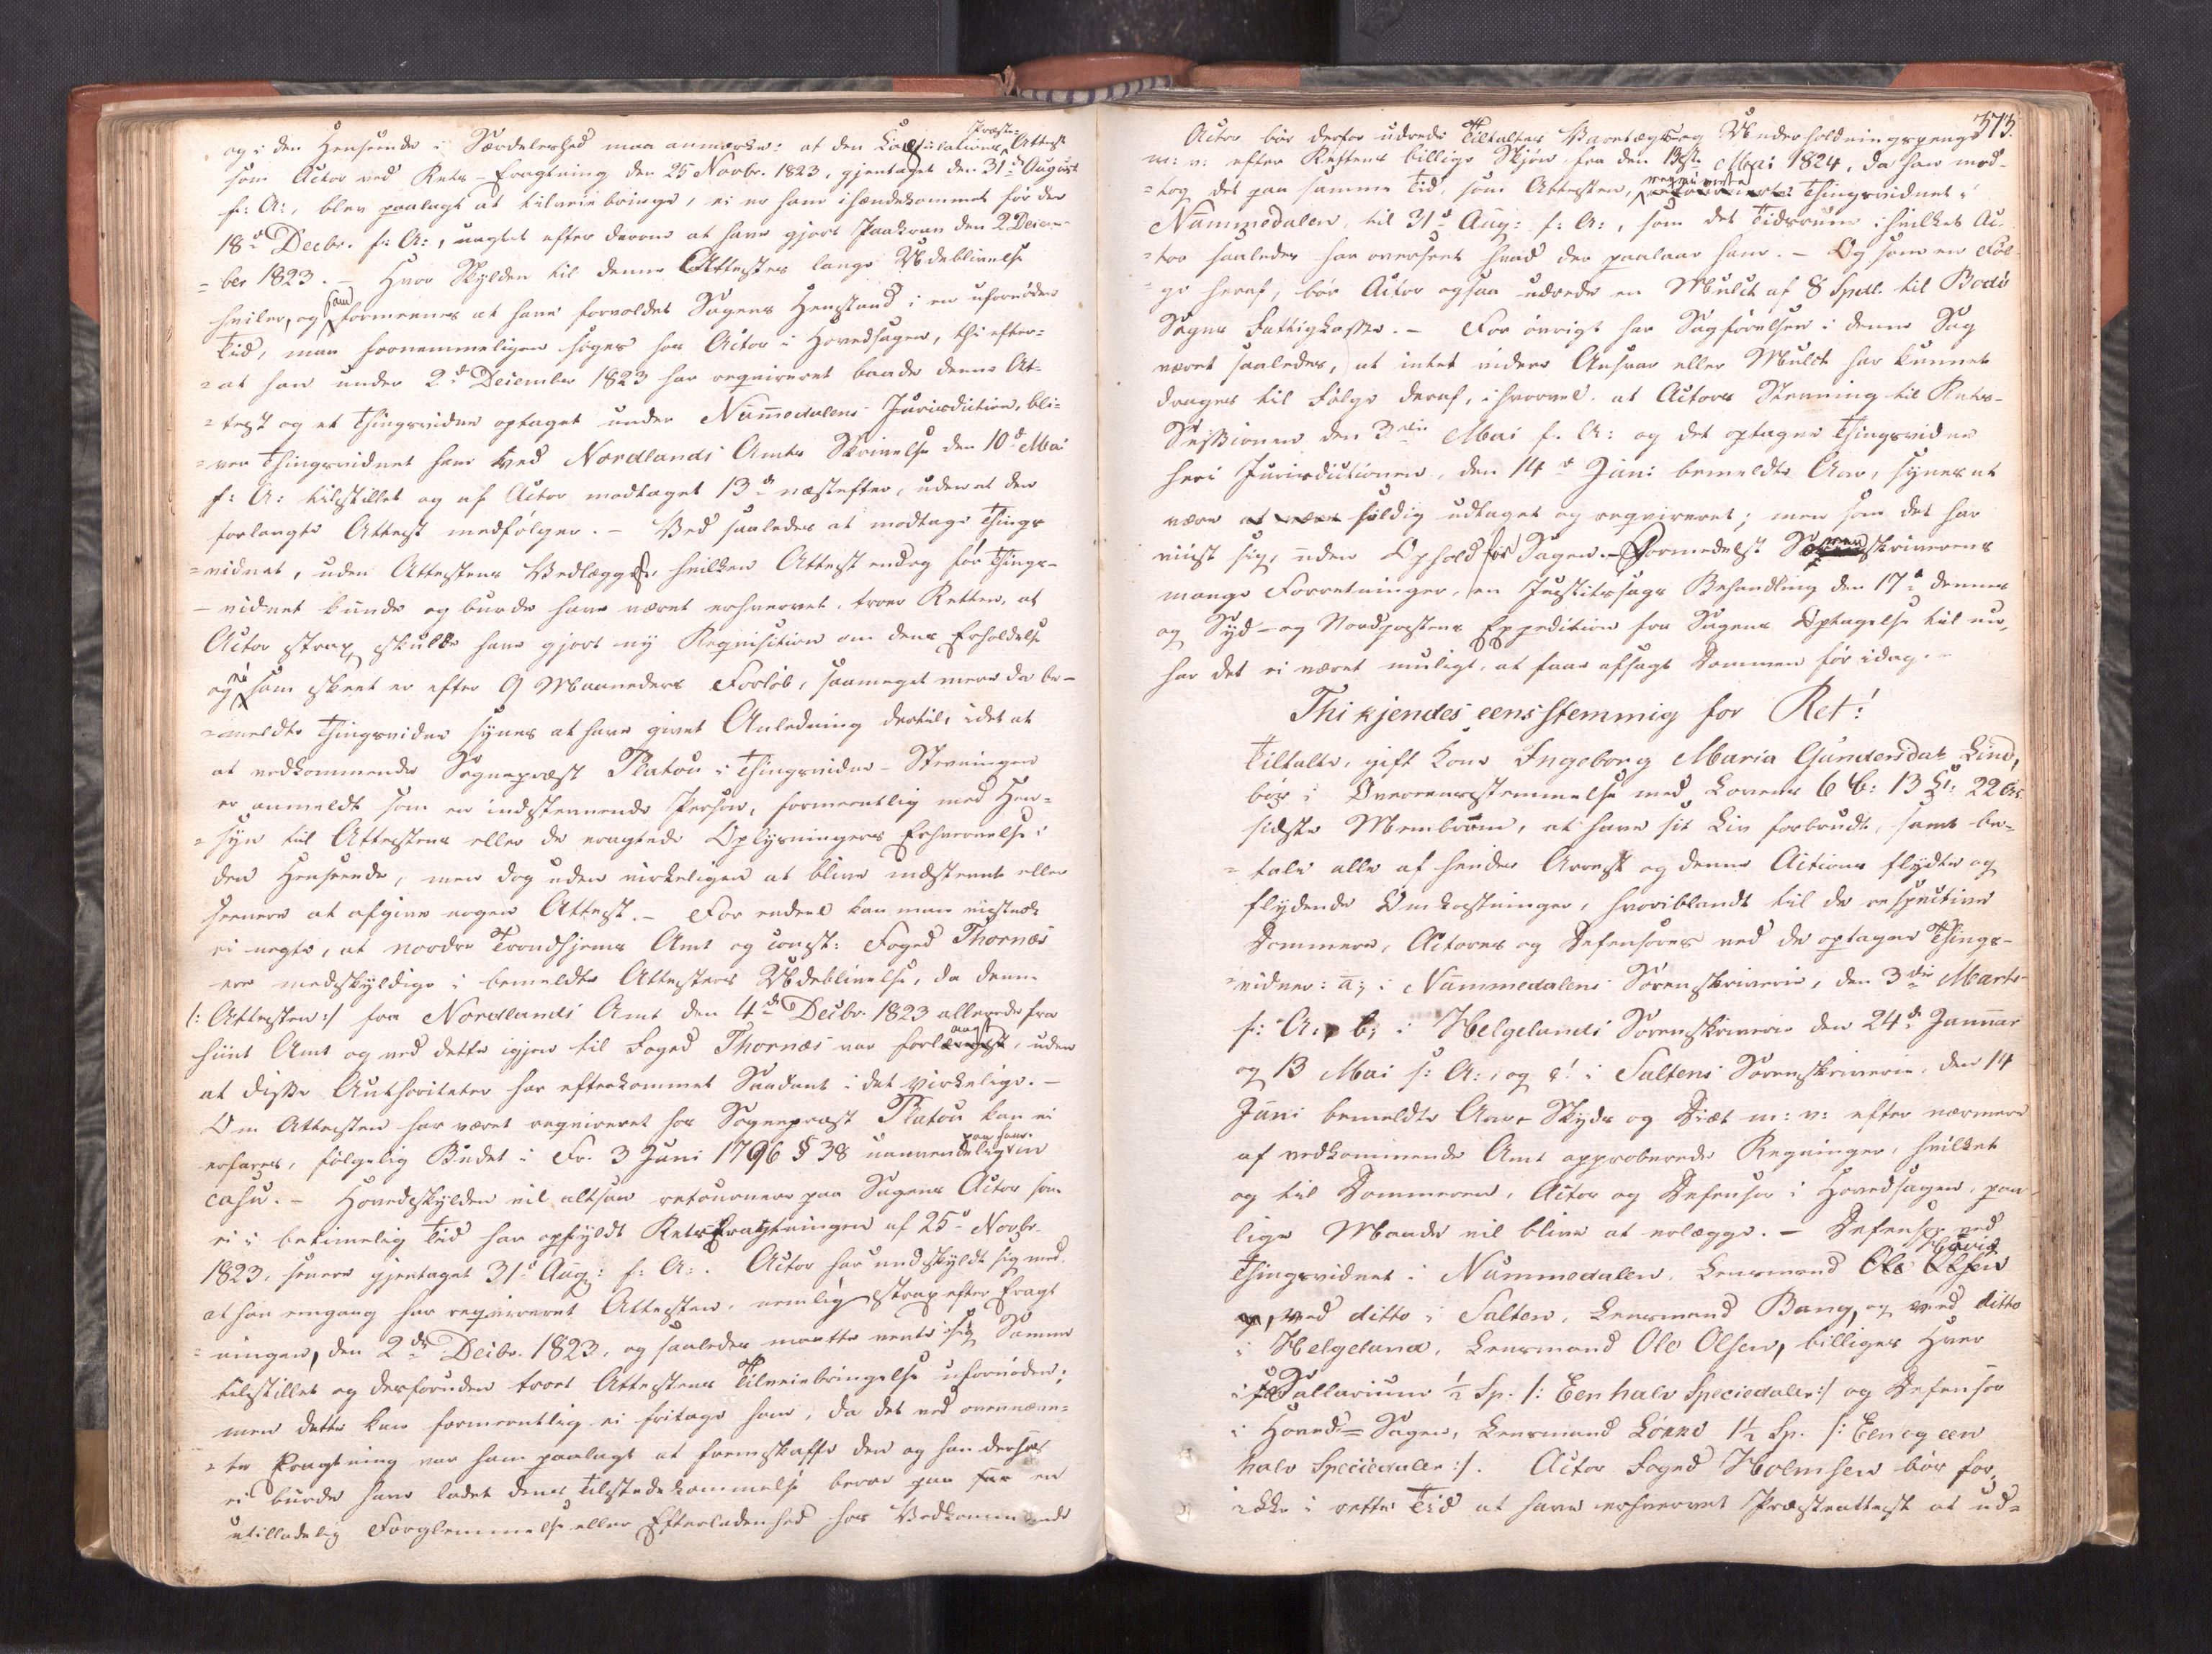 og i den Henseende i Særdeleshed maa anmærkes: at den Copulations Præste-Attest
som Actor ved Rets-Eragtning den 25 Novbr. 1823, gjentaget den 31te August
f: A:, blev paalagt at tilveiebringe, ei er ham ihændekommet før den
18de Decbr. f: A:, uagtet efter derom at have gjort Paakrav den 2 Decem-
=ber 1823. – Hvor Skylden til denne Attestes lange Udeblivelse
hviler, og som formeenes at have forvoldet Sagens Henstand i en ufornøden
Tid, maa fornemmeligen søges hos Actor i Hovedsagen, thi efter-
=at han under 2d December 1823 har requireret baade denne At-
=test og et Thingsvidne optaget under Nummedalens Jurisdiction, bli-
=ver Thingsvidnet ham ved Nordlands Amts Skrivelse den 10de Mai
f: A: tilstillet og af Actor modtaget 13de næstefter, uden at den
forlangte Attest medfølger. – Ved saaledes at modtage Things-
=vidnet, uden Attestens Vedlæggelse, hvilken Attest endog før Things-
-vidnet kunde og burde have været erhvervet, troer Retten, at
Actor strax skulde have gjort ny Reqvisition om dens Erholdelse
og ei som skeet er efter 9 Maaneders Forløb, saameget mere da be-
=meldte Thingsvidne synes at have givet Anledning dertil, idet at
at vedkommende Sognepræst Platou i Thingsvidne-Stevningen
er anmeldt som en indstevnende Person, formeentlig med Hen-
=syn til Attestens eller de eragtede Oplysningers Erhvervelse i
den Henseende, men dog uden virkeligen at blive indstevnt eller
seenere at afgive nogen Attest. – For endeel kan man vistnok
ei negte, at nordre Trondhjems Amt og const: Foged Thornæs
ere medskyldige i bemeldte Attestes Udeblivelse, da denne
/: Attesten :/ fra Nordlands Amt den 4de Decbr. 1823 allerede fra
hiint Amt og ved dette igjen til Foged Thornæs var forlangt, uden
at disse Authoriteter har efterkommet Saadant i det virkelige. –
Om Attesten har været requireret hos Sognepræst Platou kan ei
erfares, følgelig Budet i Fr. 3 Juni 1796 § 38 uanvendeligt paa ham in
casu. – Hovedskylden vil altsaa retournere paa Sagens Actor som
ei i betimelig Tid har opfyldt Rets Eragtningen af 25de Novbr.
1823, senere gjentaget 31te Aug: f: A:. Actor har undskyldt sig med
at han eengang har reqvireret Attesten, nemlig strax efter Eragt
=ningen, den 2de Decbr. 1823, og saaledes maatte vente sig Samme
tilstillet og desforuden troet Attestens Tilveiebringelse ufornøden;
men dette kan formeentlig ei fritage ham, da det ved ovennævn-
=te Eragtning var ham paalagt at fremskaffe den og han derfor
ei burde have ladet dens Tilstedekommelse beroe paa en
utilladelig Forglemmelse eller Efterladenhed hos Vedkommende
373.
Actor bør derfor udrede Tiltaltes Varetægts og Underholdningspenge
m: v: efter Rettens billige Skjøn fra den 13de Mai 1824, da han mod-
=tog det paa samme Tid, som Attesten, reqvirerte Thingsvidnet i
Nummedalen, til 31te Aug: f: A:, som det Tidsrum i hvilket Ac-
=tor saaledes har overseet hvad der paalaae ham. – Og som en Føl-
=ge heraf, bør Actor ogsaa udrede en Mulct af 8 Spdl. til Bodø
Sogns Fattigkasse. – For øvrigt har Sagførelsen i denne Sag
været saaledes, at intet videre Ansvar eller Mulct har kunnet
drages til Følge deraf, ihvorvel at Actors Stevning til Rets-
Sessionen den 3die Mai f. A: og det optagne Thingsvidne
her i Jurisdictionen, den 14de Juni bemeldte Aar, synes at
være sildig udtaget og reqvireret; men som det har
viist sig, uden Ophold for Sagen. – Formedelst Sorenskriverens
mange Forretninger, en Justitssags Behandling den 17de dennes
og Syd- og Nordpostens Expedition fra Sagens Optagelse til nu,
har det ei været muligt, at faae afsagt Dommen før idag. –
Thi kjendes eensstemmig for Ret:
Tiltalte, gift Kone Ingeborg Maria Gundersdat. Lind,
bør i Overeensstemmelse med Lovens 6 B: 13 Cp: 22 Art.
sidste Membrum, at have sit Liv forbrudt, samt be-
=tale alle af hendes Arrest og denne Actions flydte og
flydende Omkostninger, hvoriblandt til de respective
Dommere, Actores og Defensores ved de optagne Things-
=vidner: a; i Nummedalens Sorenskriverie, den 3die Marts
f: A:, b; i Helgelands Sorenskriverie den 24de Januar
og 13 Mai f: A:, og c! i Saltens Sorenskriverie, den 14
Juni bemeldte Aar, Skyds og Diæt m: v: efter nærmere
af vedkommende Amt approberede Regninger, hvilket
og til Dommeren, Actor og Defensor i Hovedsagen, paa
lige Maade vil blive at erlægge. – Defensor ved
Thingsvidnet i Nummedalen, Lensmand
ved ditto i Salten, Lensmand Bang, og ved ditto
i Helgeland, Lensmand Ole Olsen, billiges hver
i Sallarium ½ Sp. /: Een halv Speciedaler :/ og Defensor
i Hoved=Sagen, Lensmand Lønne 1½ Sp. /: Een og een
halv Speciedaler :/. Actor Foged Holmsen bør for,
ikke i rette Tid at have erhvervet Præsteattest at ud-